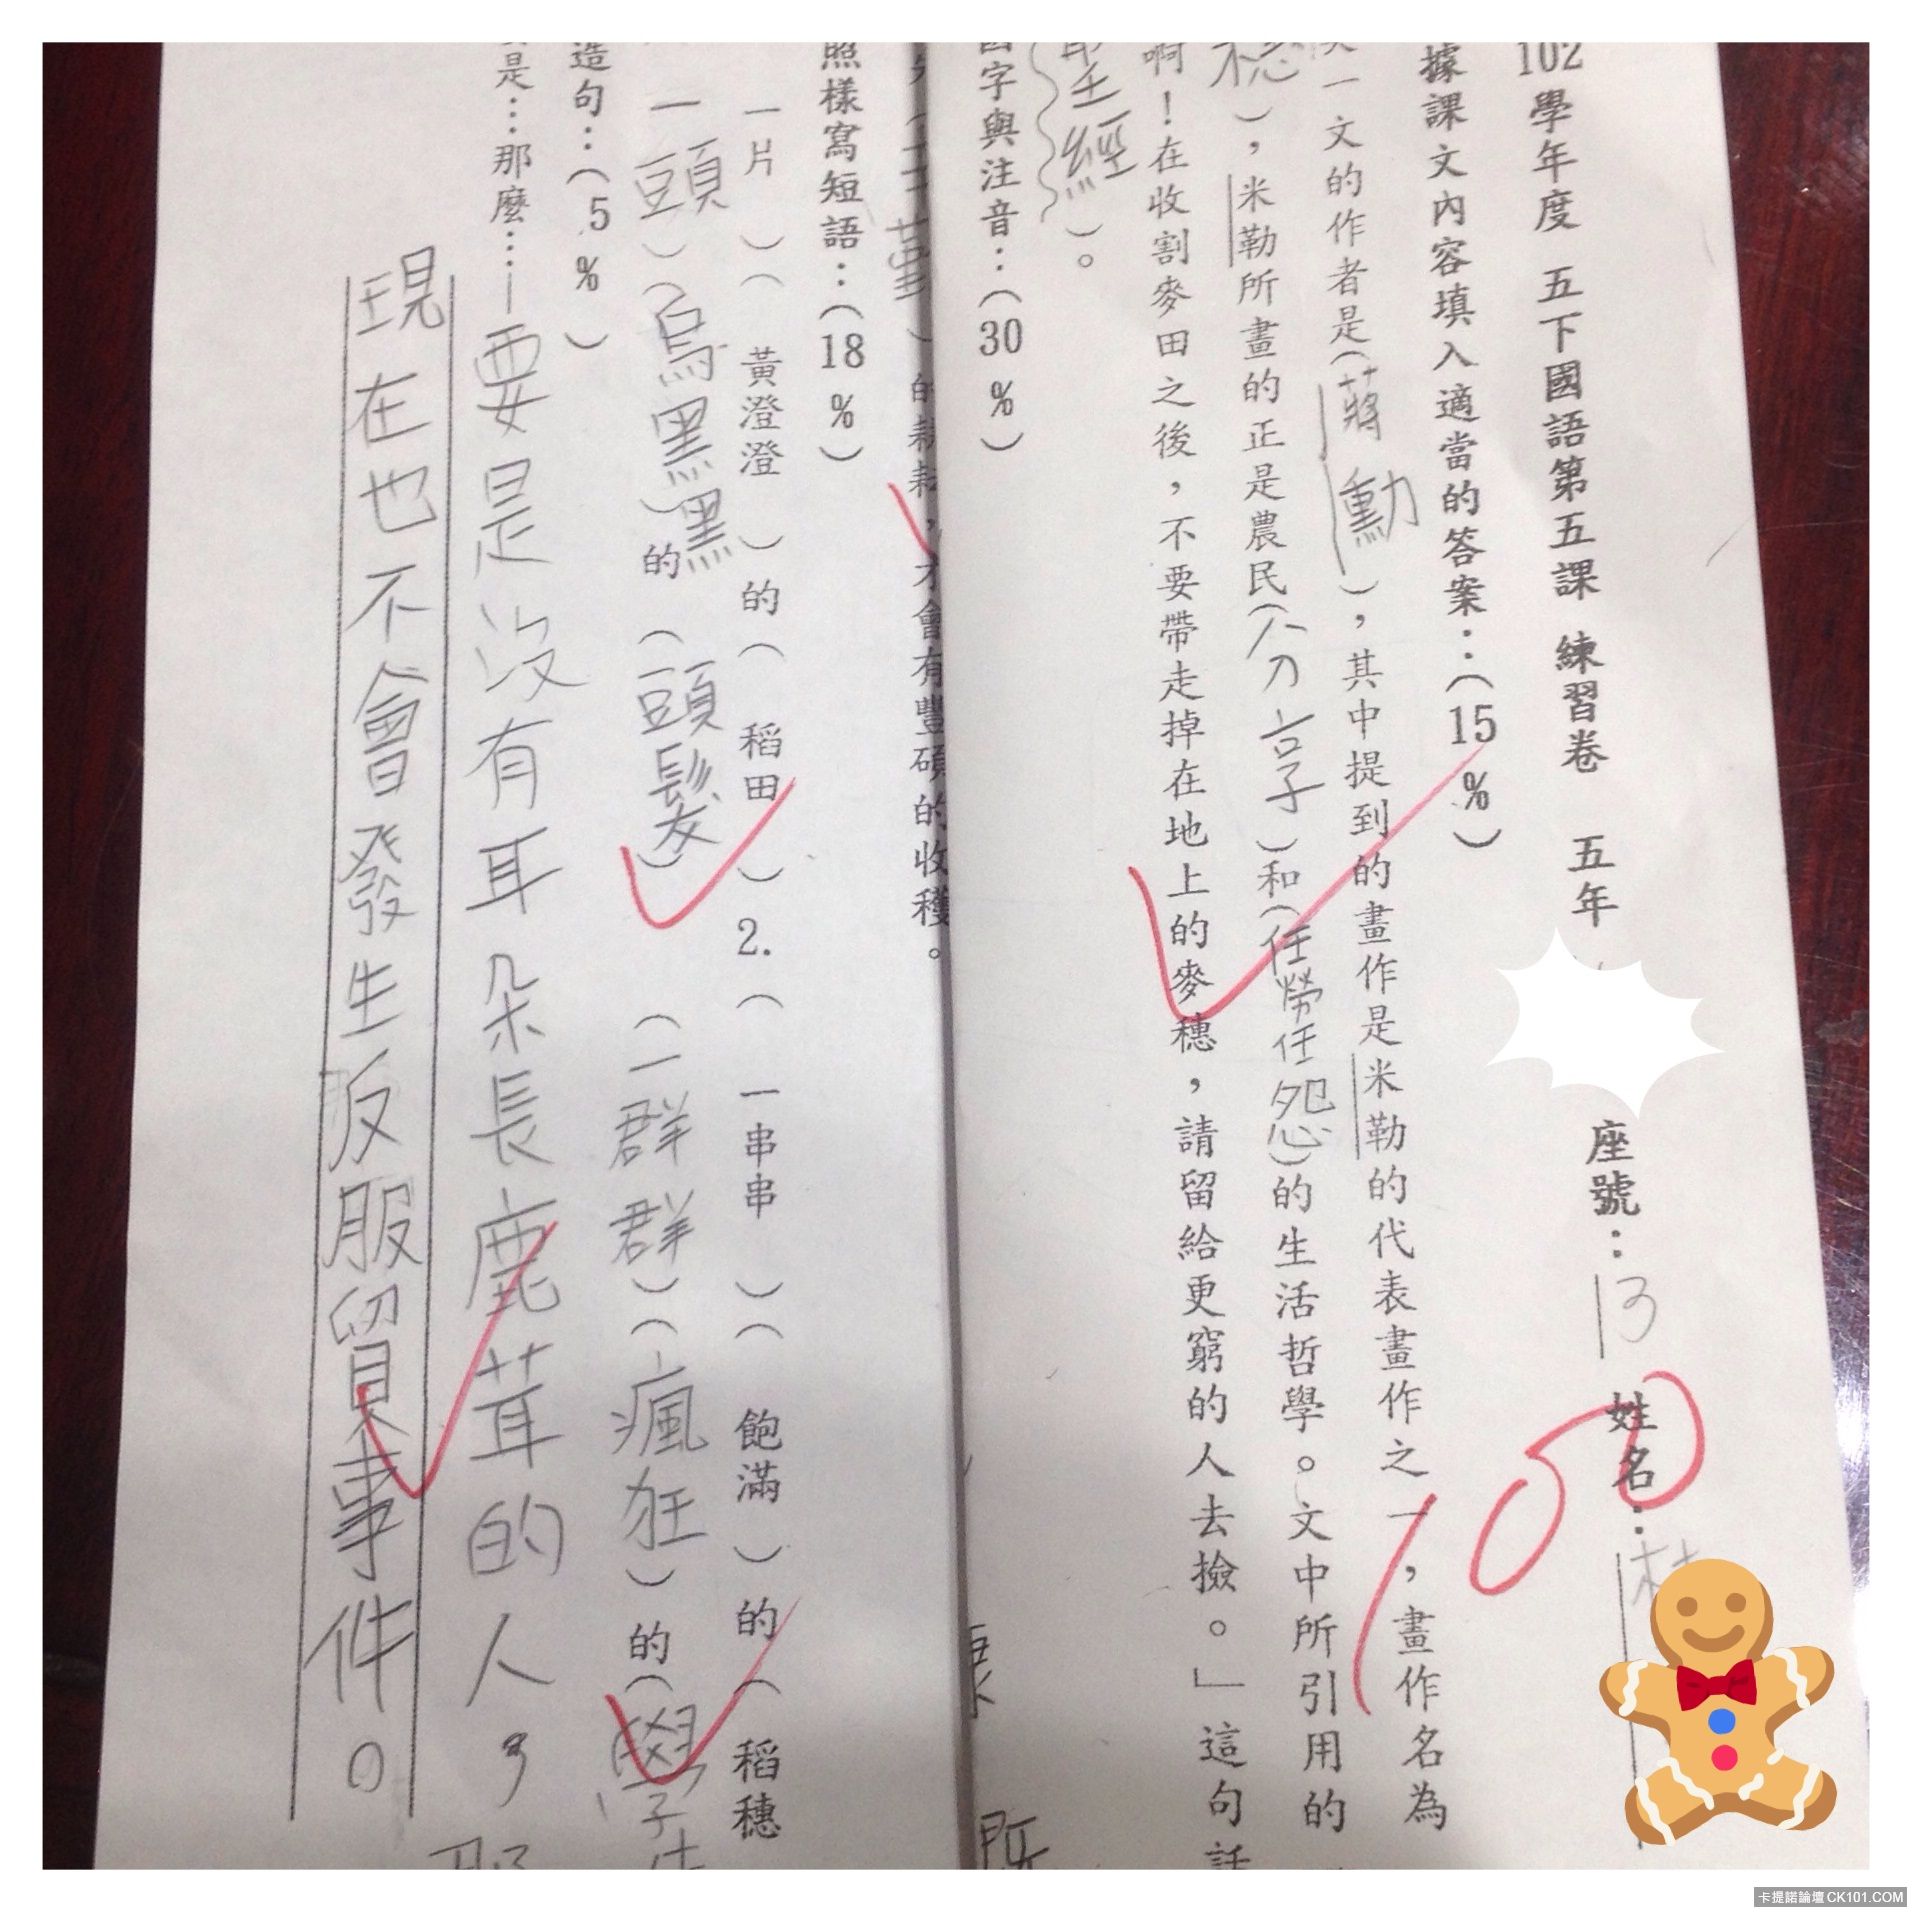 102學年度 五下國語第五課 練習卷 五年 座號：13 姓名：
據課文內容填入適當的答案：(15%)
一文的作者是(蔣勳)，其中提到的畫作是米勒的代表畫作之一，畫作名為
穗)，米勒所畫的正是農民(分享)和(任勞任怨)的生活哲學。文中所引用的
啊！在收割麥田之後，不要帶走掉在地上的麥穗，請留給更窮的人去撿。」這句話
聖經)。
國字與注音：(30%)
)的耕耘，才會有豐碩的收穫。
照樣寫短語：(18%)
一片)(黃澄澄)的(稻田)2.(一串串)(飽滿)的(稻穗
一頭)(烏黑黑)的(頭髮)(一群群)(瘋狂)的(學
造句：(5%)
是…那麼…
要是沒有耳朵長鹿茸的人，
現在也不會發生反服貿事件。
100
卡提諾論壇 CK101.COM